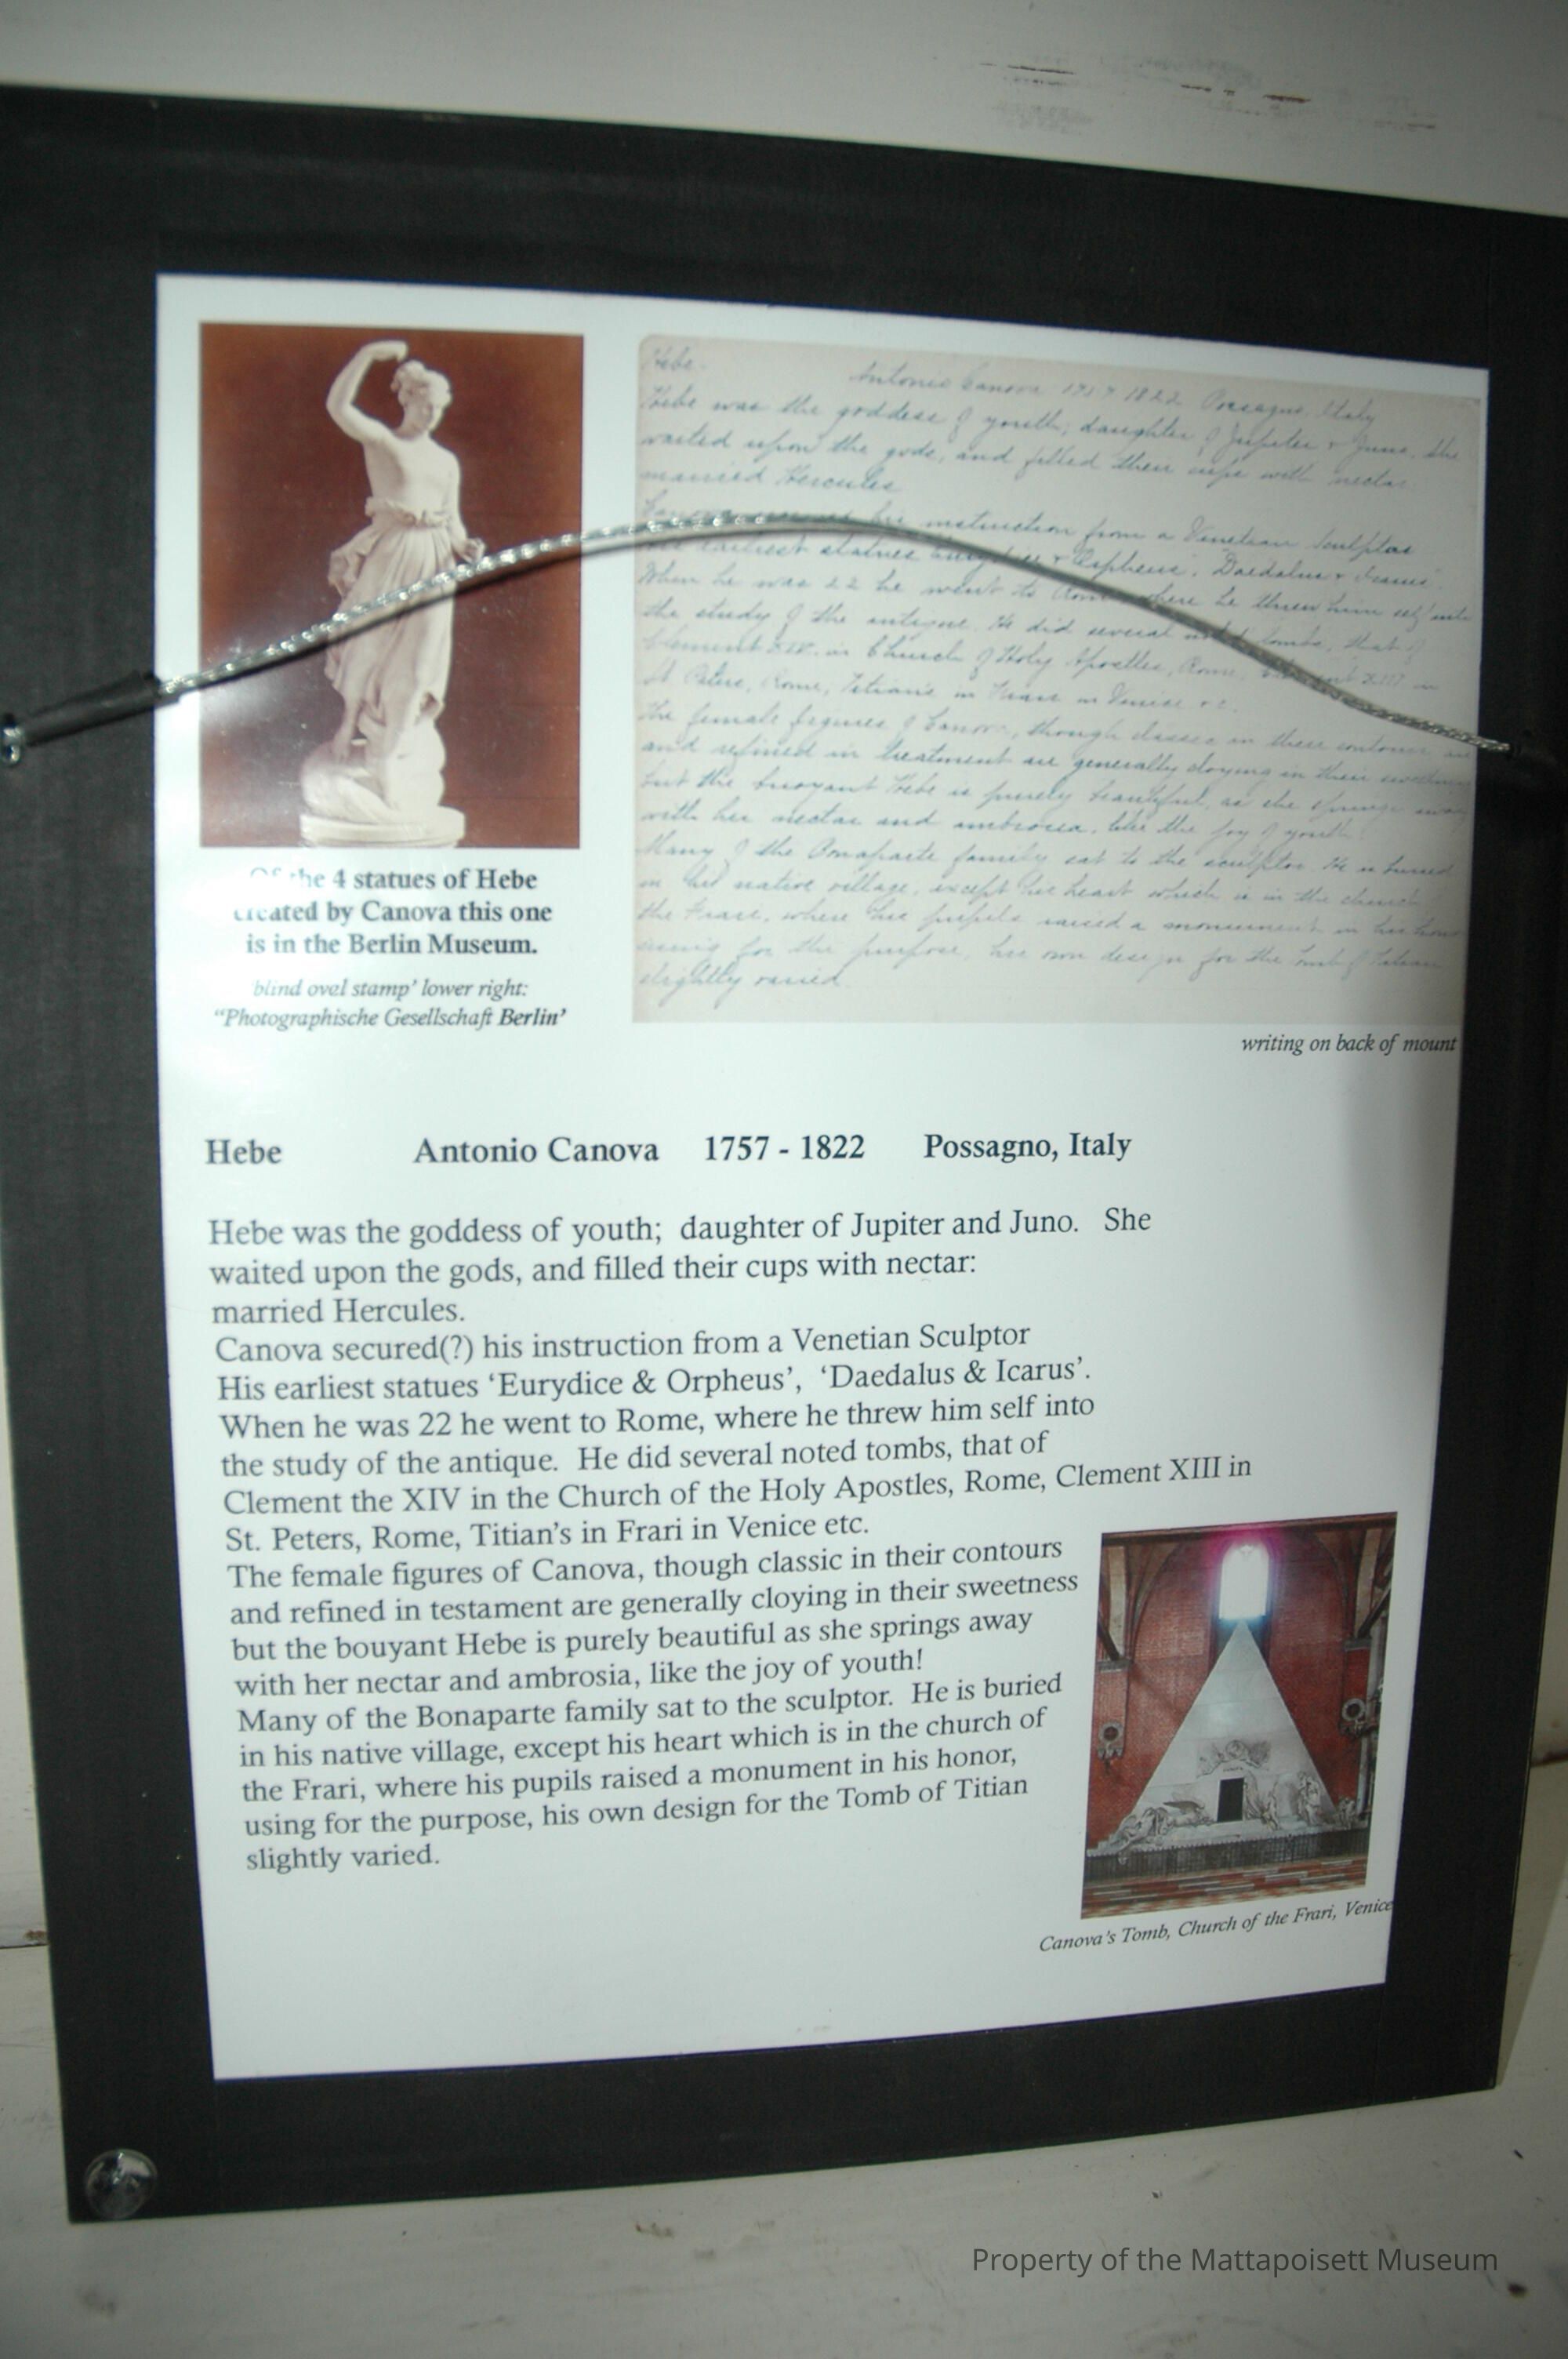 Hebe. Antonio Canova 1757 1822 Possagno, Italy
Hebe was the goddess of youth; daughter of Jupiter & Juno. She
waited upon the gods, and filled their cups with nectar
married Hercules
his instruction from a Venetian Sculptor
earliest statues Eurydice & Orpheus, Daedalus & Icarus.
When he was 22 he went to Rome where he threw him self into
the study of the antique. He did several noted tombs, that of
Clement XIV. in Church of Holy Apostles, Rome, XIII in
St Peters, Rome, Titian's in Frari in Venice
The female figures of Canova, though classic in their contours
and refined in treatment are generally cloying in their sweetness
but the buoyant Hebe is purely beautiful, as she springs away
with her nectar and ambrosia, like the joy of youth
Many of the Bonaparte family sat to the sculptor He is buried
in his native village, except his heart which is in the church
the Frari, where his pupils raised a monument in his honor
using for the purpose, his own design for the tomb of Titian
slightly varied.
Of the 4 statues of Hebe
created by Canova this one
is in the Berlin Museum.
blind oval stamp' lower right:
"Photographische Gesellschaft Berlin'
writing on back of mount
Hebe Antonio Canova 1757 - 1822 Possagno, Italy
Hebe was the goddess of youth; daughter of Jupiter and Juno. She
waited upon the gods, and filled their cups with nectar:
married Hercules.
Canova secured(?) his instruction from a Venetian Sculptor
His earliest statues ‘Eurydice & Orpheus’, ‘Daedalus & Icarus’.
When he was 22 he went to Rome, where he threw him self into
the study of the antique. He did several noted tombs, that of
Clement the XIV in the Church of the Holy Apostles, Rome, Clement XIII in
St. Peters, Rome, Titian’s in Frari in Venice etc.
The female figures of Canova, though classic in their contours
and refined in testament are generally cloying in their sweetness
but the bouyant Hebe is purely beautiful as she springs away
with her nectar and ambrosia, like the joy of youth!
Many of the Bonaparte family sat to the sculptor. He is buried
in his native village, except his heart which is in the church of
the Frari, where his pupils raised a monument in his honor,
using for the purpose, his own design for the Tomb of Titian
slightly varied.
Canova's Tomb, Church of the Frari, Venice
Property of the Mattapoisett Museum